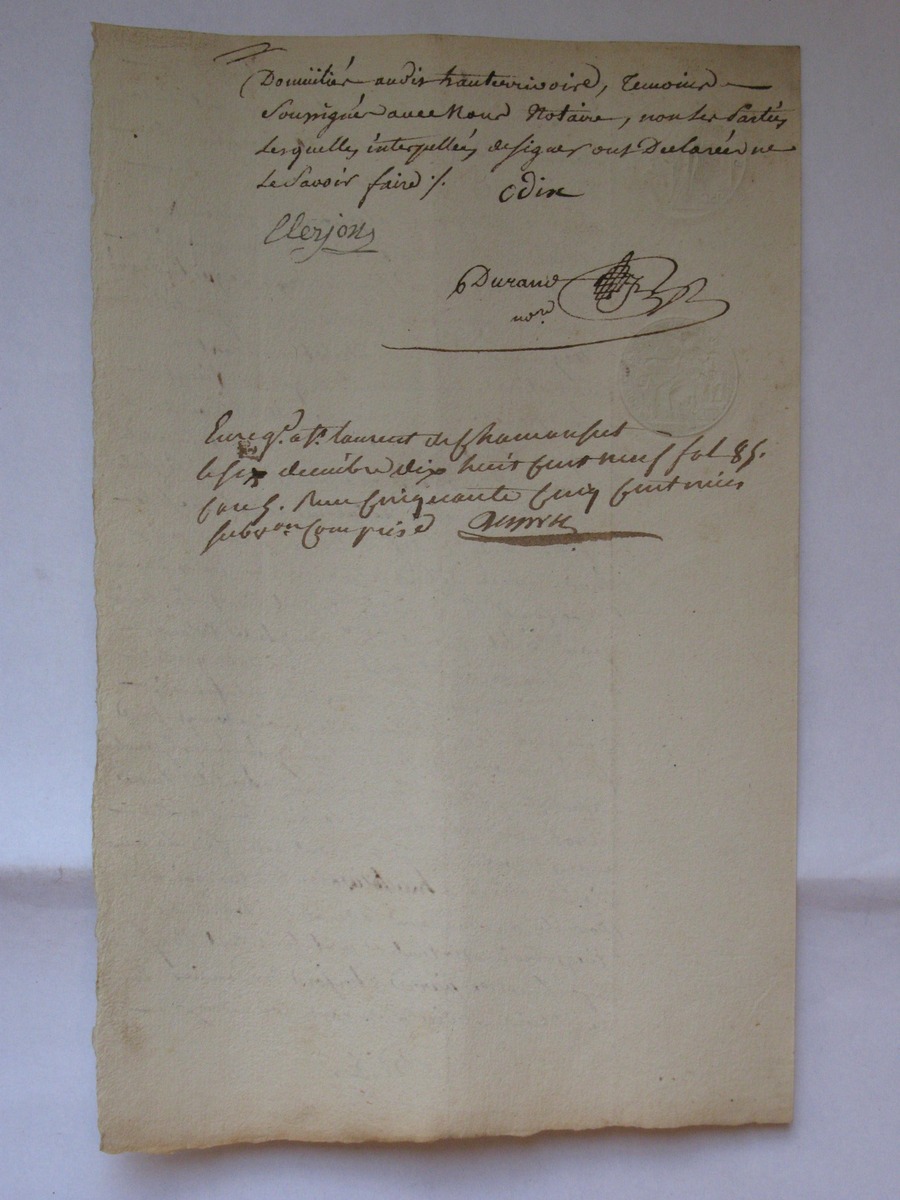 Domiiliés audit hauterivoire, Temoins
Soussignés avec Nous Notaire, non Les Parties
Lesquelles interpellées de signer ont Declarées ne
Le Savoir faire ./.
Odin
Clerjon
Durand
nore
Enregé. a St. laurent de Chamousset
le six decembre dix huit cent neuf fol 85.
Case 5. Reçu Cinquante Cinq Centimes
subvon Comprise